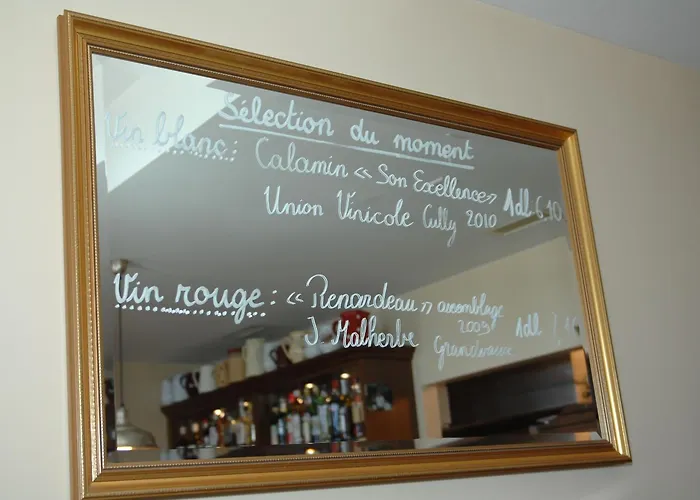 Sélection du moment
Vin blanc: Calamin «Son Excellence»
Union Vinicole Cully 2010 1dl 6.10
Vin rouge: «Renardeau» assemblage
2009
J. Malherbe 1dl 7.